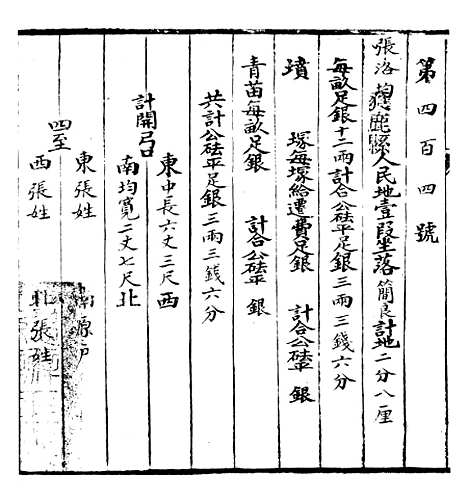 第四百四號
張洛均獲鹿縣人民地壹段坐落簡良計地二分八厘
每畝足銀十二兩計合公砝平足銀三兩三錢六分
墳 塚每塚給遷費足銀 計合公砝平 銀
青苗每畝足銀 計合公砝平 銀
共計公砝平足銀三兩三錢六分
計開弓口
東中長六丈三尺西
南均寬二丈七尺北
四至
東張姓
南原戶
西張姓
北張姓